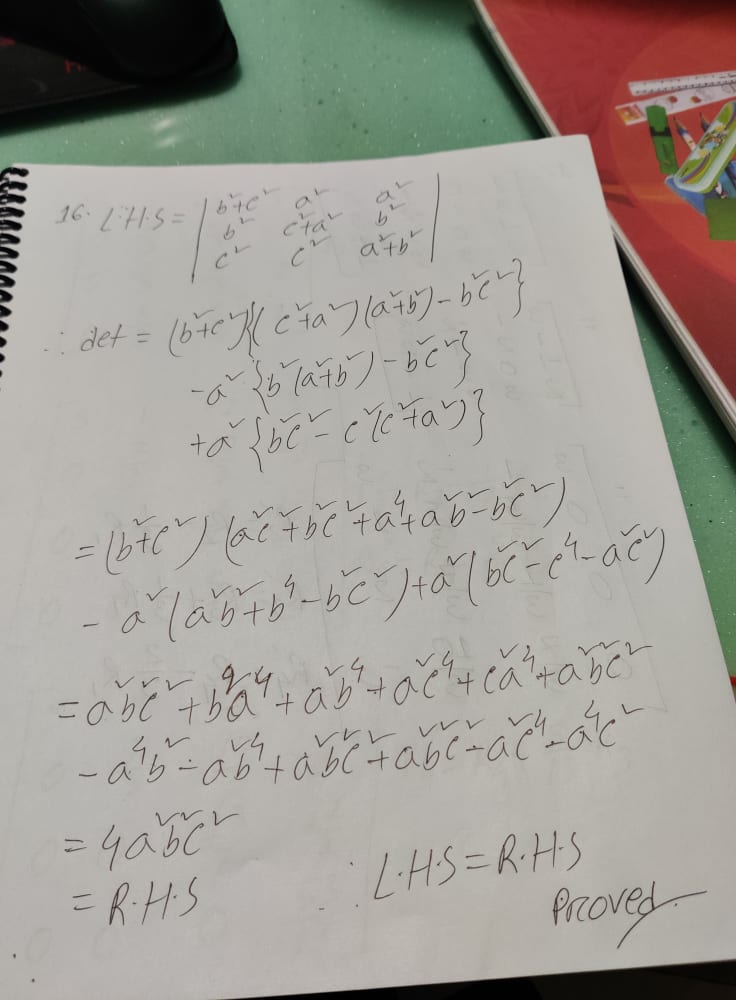 16. L.H.S = | b²+c² a² a² |
| b² c²+a² b² |
| c² c² a²+b² |
∴ det = (b²+c²){(c²+a²)(a²+b²) - b²c²}
-a²{b²(a²+b²) - b²c²}
+a²{b²c² - c²(c²+a²)}
=(b²+c²) (a²c²+b²c²+a⁴+a²b²-b²c²)
- a²(a²b²+b⁴-b²c²)+a²(b²c²-c⁴-a²c²)
=a²b²c²+b²a⁴+a²b⁴+a²c⁴+c²a⁴+a²b²c²
-a⁴b²-a²b⁴+a²b²c²+a²b²c²-a²c⁴-a⁴c²
= 4a²b²c²
= R.H.S ∴ L.H.S = R.H.S
Proved.